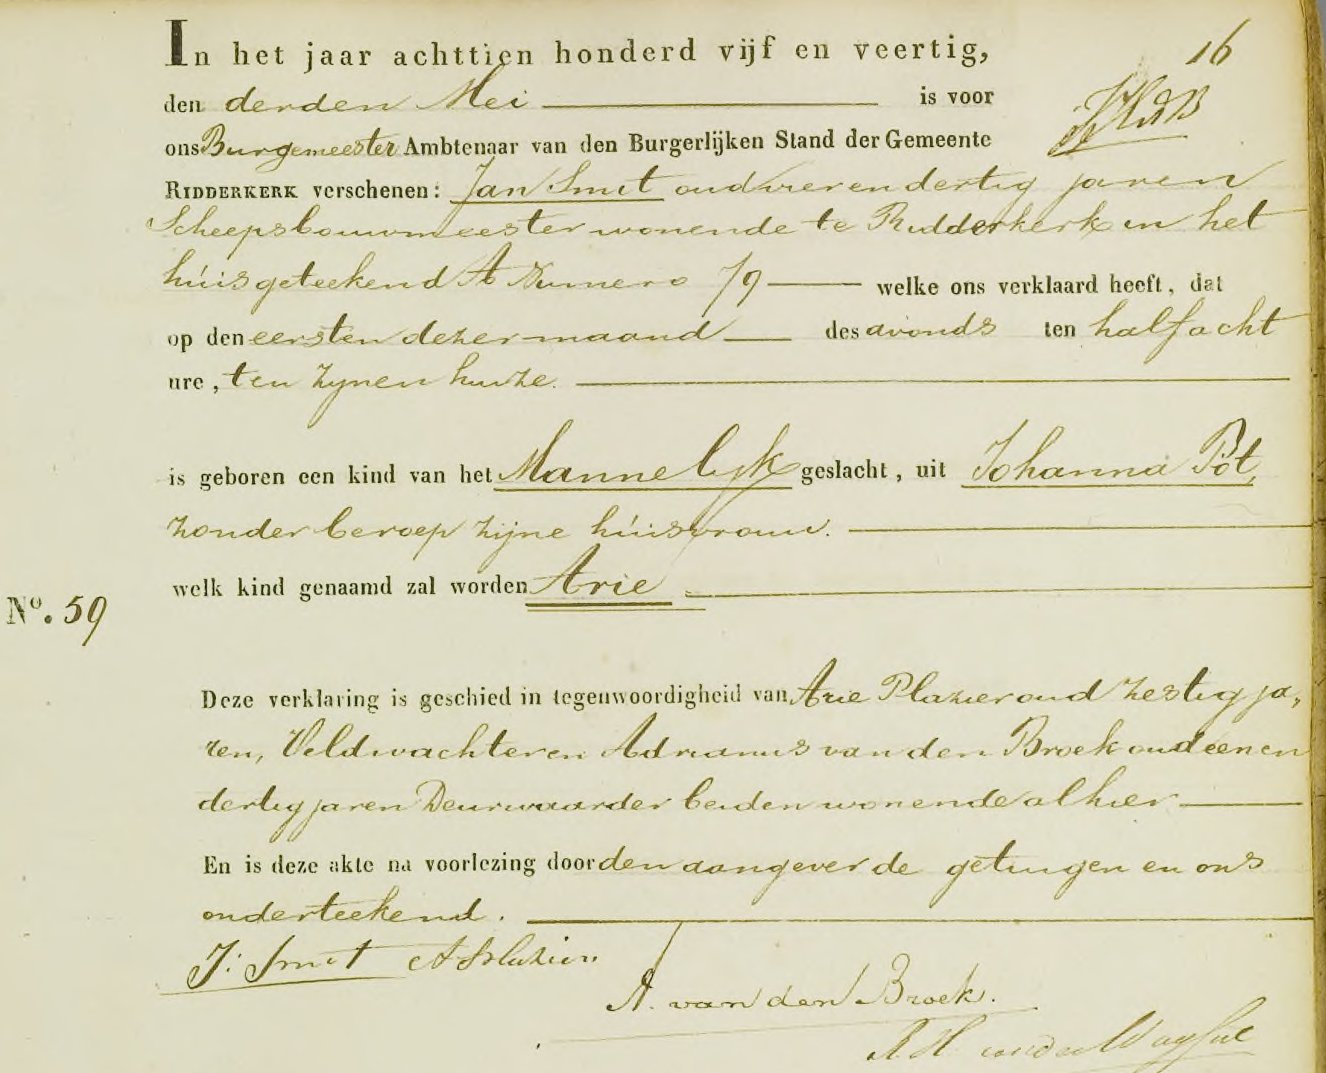 16
In het jaar achttien honderd vijf en veertig,
den derden Mei is voor
ons Burgemeester Ambtenaar van den Burgerlijken Stand der Gemeente
RIDDERKERK verschenen: Jan Smit oud vier en dertig jaren
Scheepsbouwmeester wonende te Ridderkerk in het
huis geteekend A Numero 79 welke ons verklaard heeft, dat
op den eersten dezer maand des avonds ten half acht
ure, ten zijnen huize.
is geboren een kind van het Mannelijk geslacht, uit Johanna Pot,
zonder beroep zijne huisvrouw.
welk kind genaamd zal worden Arie
No. 59
Deze verklaring is geschied in tegenwoordigheid van Arie Plazier oud zestig ja,
ren, Veldwachter en Adrianus van den Broek oud een en
dertig jaren Deurwaarder beiden wonende alhier
En is deze akte na voorlezing door den aangever de getuigen en ons
onderteekend.
J. Smit A Plazier
A. van den Broek.